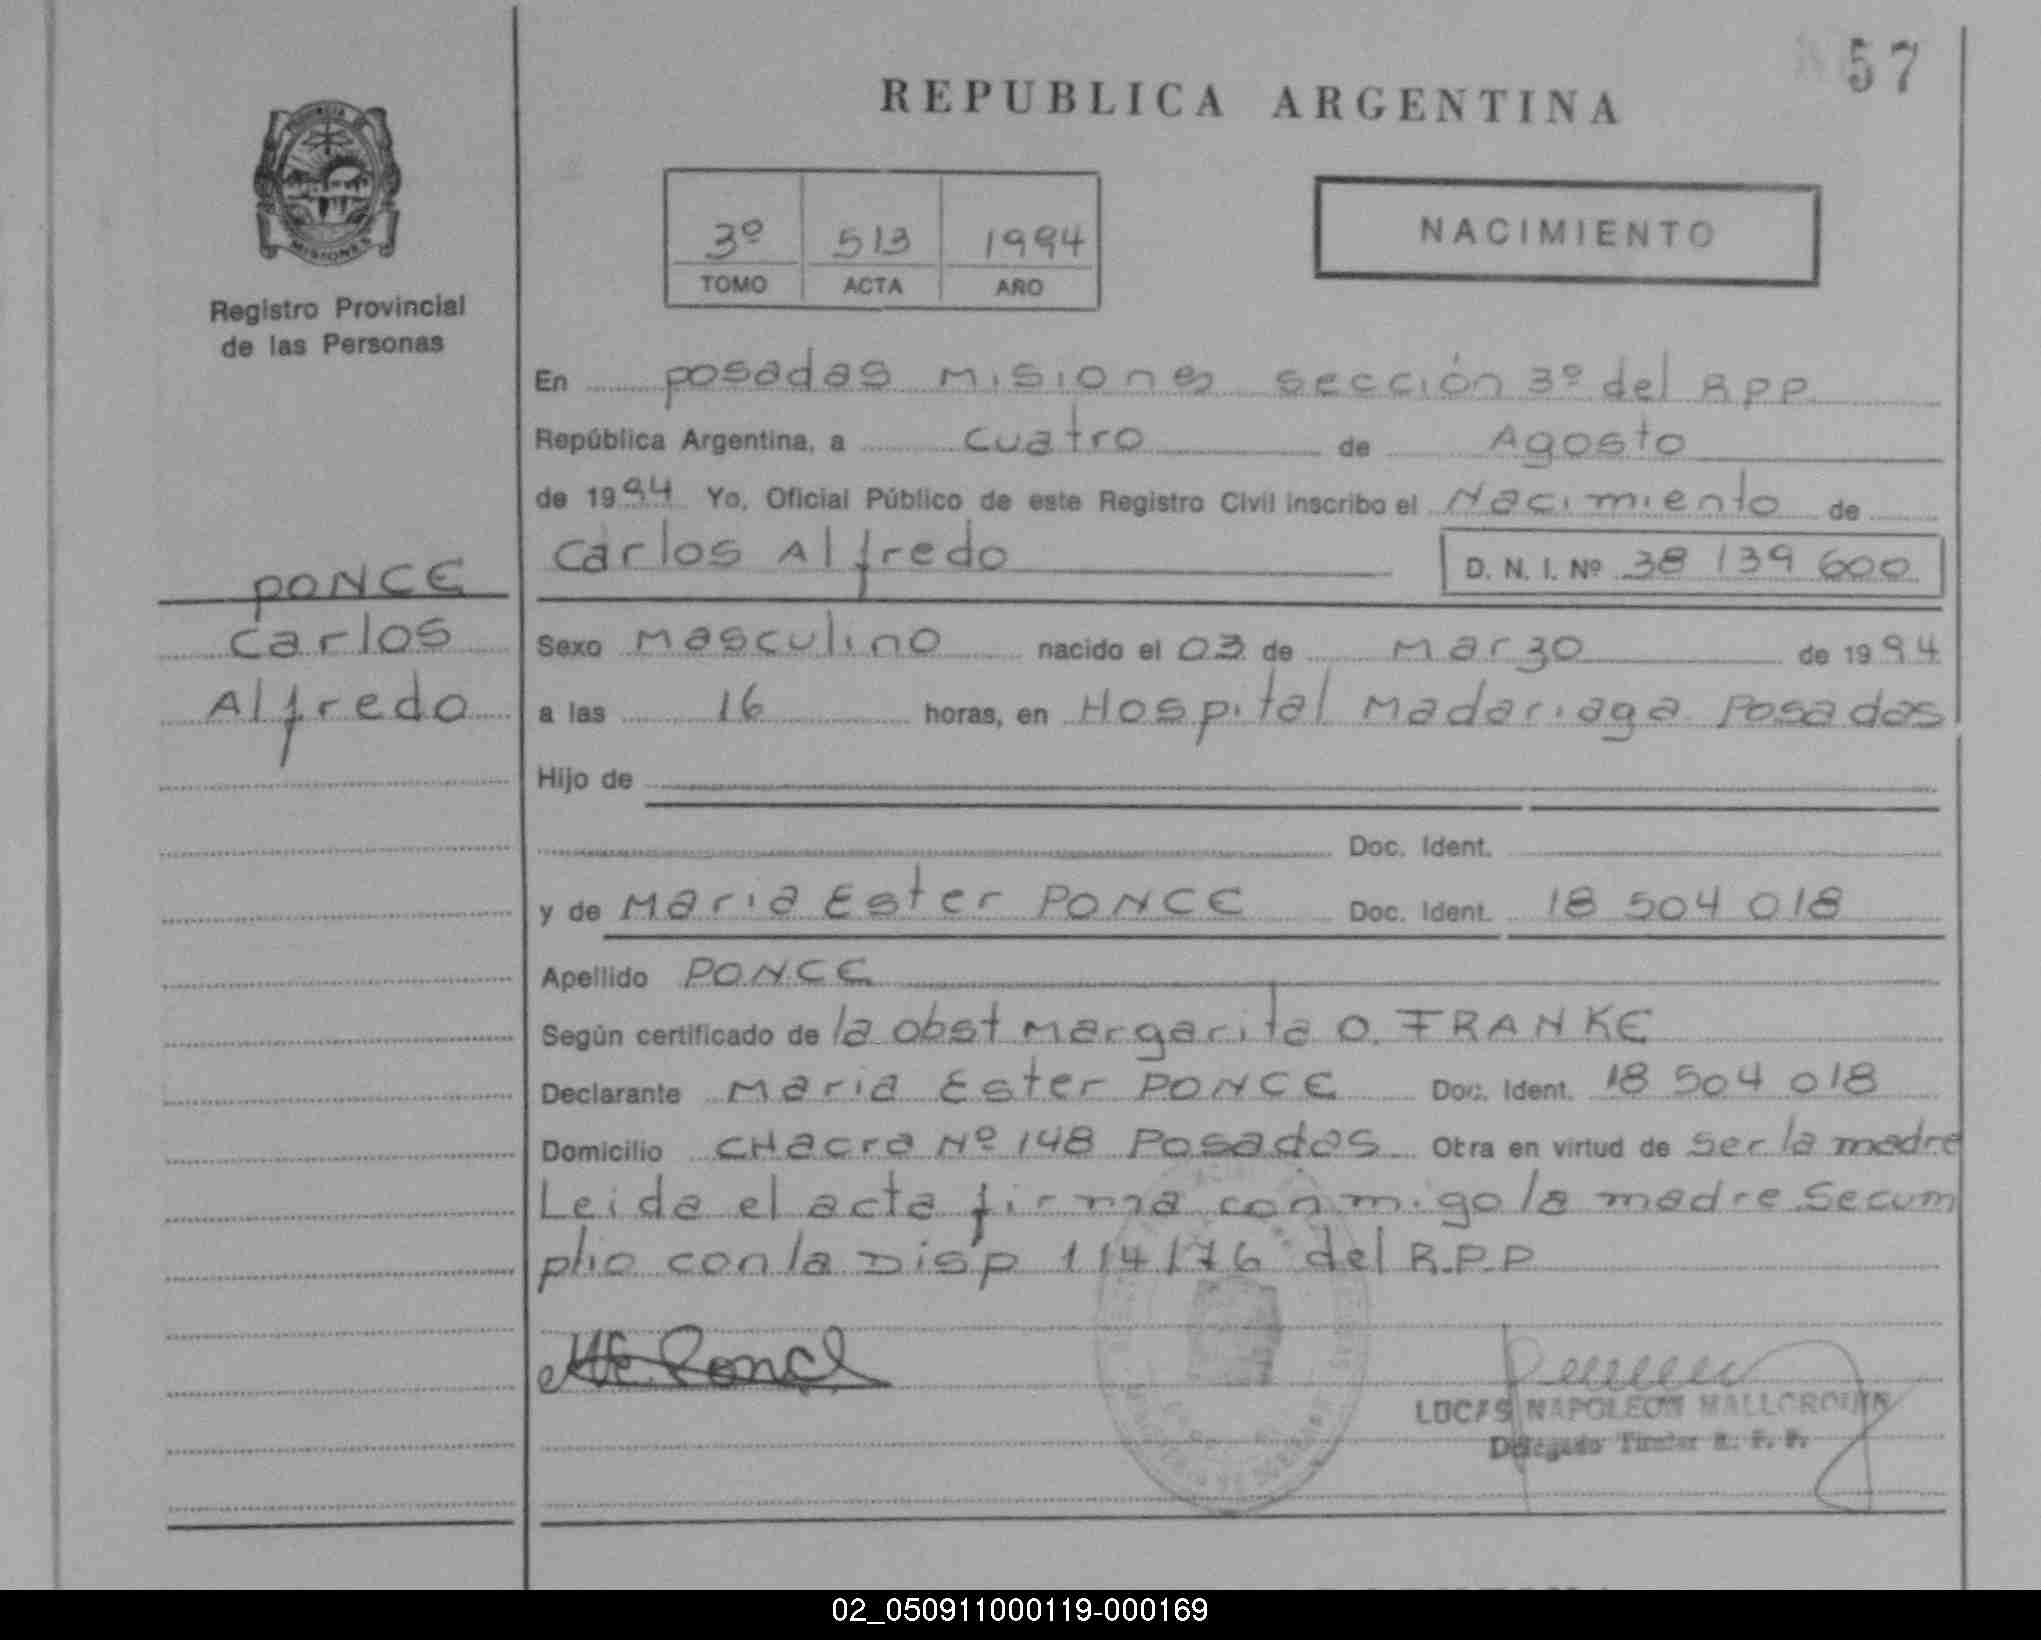 57
REPUBLICA ARGENTINA
MISIONES
Registro Provincial
de las Personas
3º 513 1994
TOMO ACTA AÑO
NACIMIENTO
En posadas Misiones sección 3º del RPP
República Argentina, a cuatro de Agosto
de 1994 Yo, Oficial Público de este Registro Civil inscribo el Nacimiento de
Carlos Alfredo D. N. I. Nº 38 139 600
PONCE
Carlos
Alfredo
Sexo Masculino nacido el 03 de Marzo de 1994
a las 16 horas, en Hospital Madariaga Posadas
Hijo de
Doc. Ident.
y de Maria Ester PONCE Doc. Ident. 18 504 018
Apellido PONCE
Según certificado de la obst Margarita O. FRANKE
Declarante Maria Ester PONCE Doc. Ident. 18 504 018
Domicilio CHacra Nº 148 Posadas Obra en virtud de ser la madre
Leida el acta firma conmigo la madre. Secum
plio con la Disp 114/76 del R.P.P
Ponce
LUCAS NAPOLEON MALLORQUIN
Delegado Titular R. P. P.
02_050911000119-000169